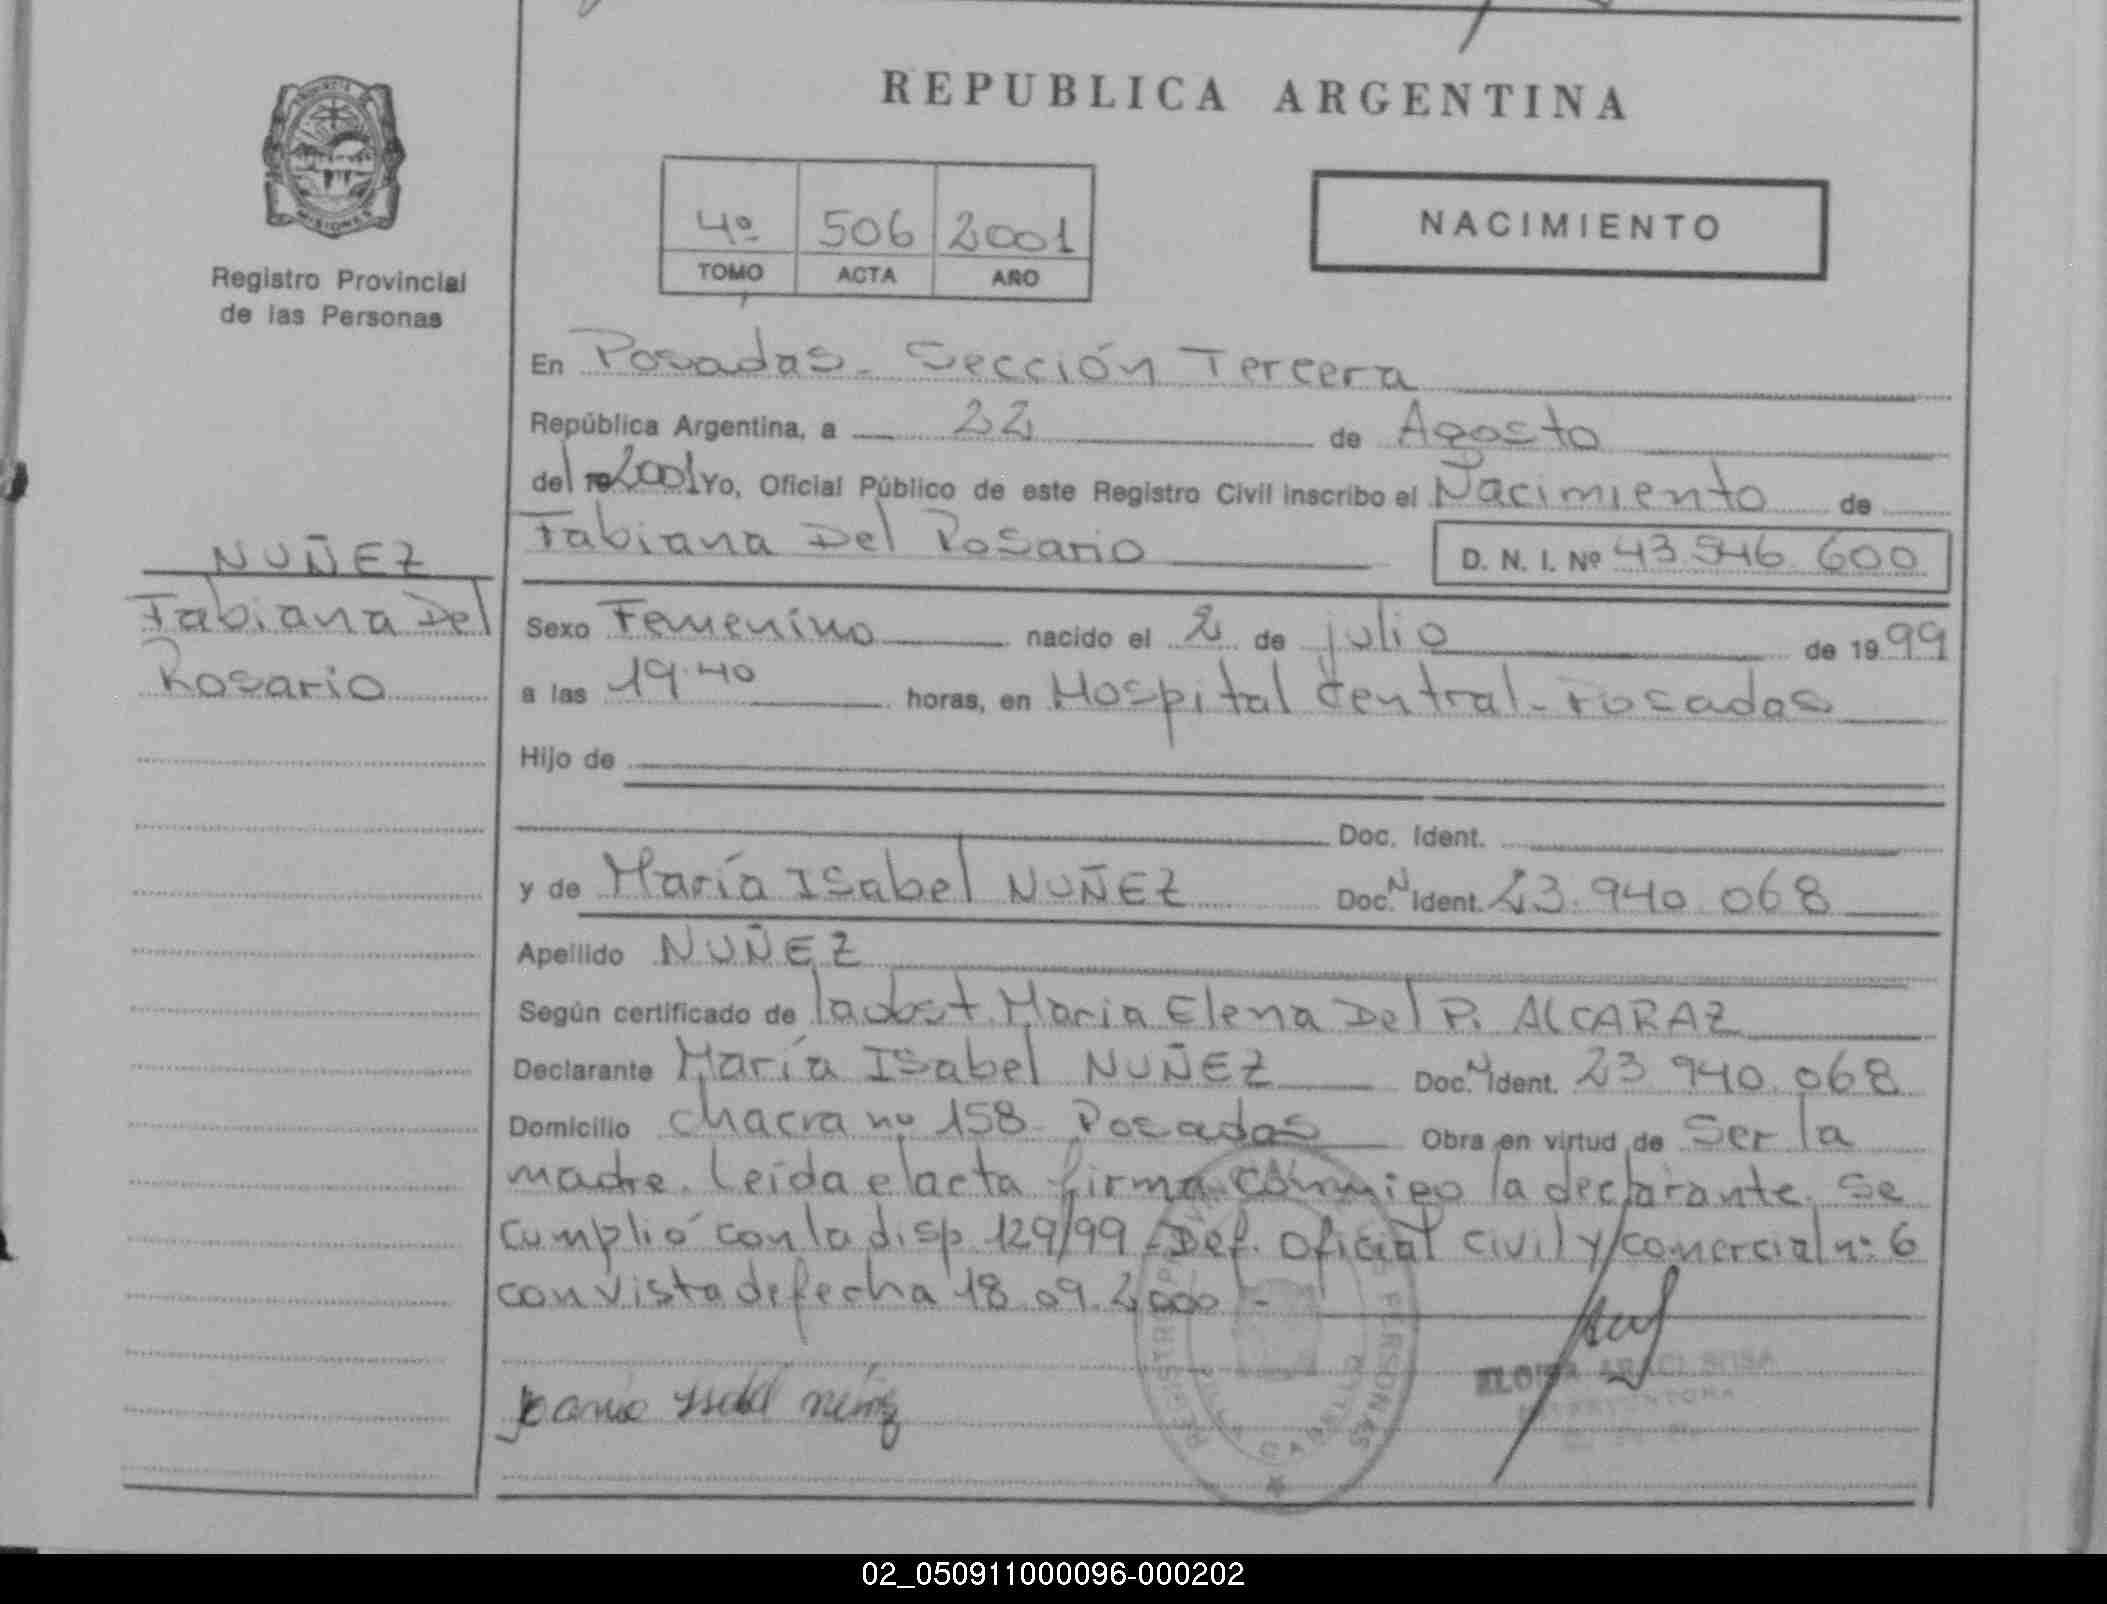 REPUBLICA ARGENTINA
MISIONES
Registro Provincial
de las Personas
4º 506 2001
TOMO ACTA AÑO
NACIMIENTO
En Posadas - Sección Tercera
República Argentina, a 22 de Agosto
del 2001 Yo, Oficial Público de este Registro Civil inscribo el Nacimiento de
Fabiana Del Rosario D. N. I. Nº 43.546.600
NUÑEZ
Fabiana Del
Rosario
Sexo Femenino nacido el 2 de julio de 1999
a las 19.40 horas, en Hospital Central - Posadas
Hijo de
Doc. Ident.
y de María Isabel NUÑEZ Doc. N Ident. 23.940.068
Apellido NUÑEZ
Según certificado de la obst. Maria Elena Del P. ALCARAZ
Declarante María Isabel NUÑEZ Doc. N Ident. 23.940.068
Domicilio Chacra nº 158 - Posadas Obra en virtud de Ser la
madre. Leída el acta firma conmigo la declarante. Se
cumplió con la disp. 129/99 - Def. Oficial civil y comercial nº 6
con vista de fecha 18.09.2000 -
REGISTRO PERSONAS
SOSA
02_050911000096-000202